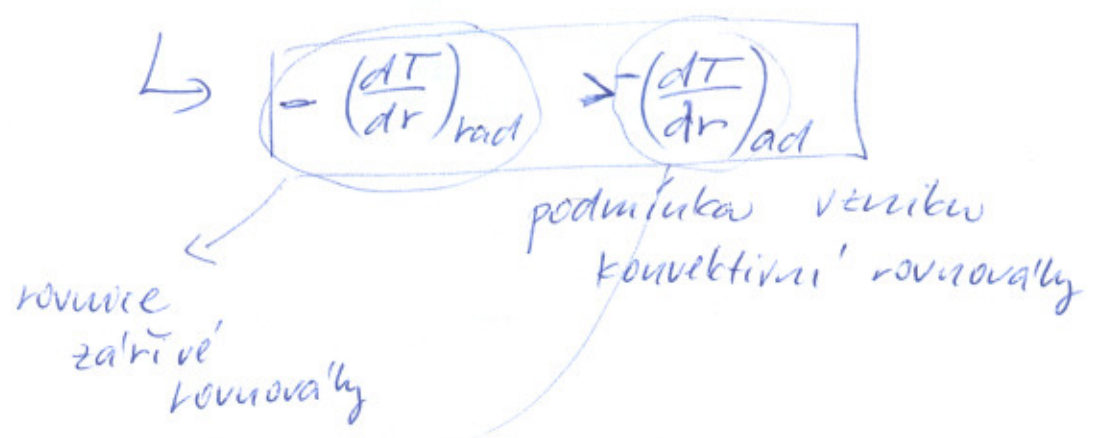 ↳ - (dT/dr)rad > -(dT/dr)ad
podmínka vzniku
konvektivní rovnováhy
rovnice
zářivé
rovnováhy